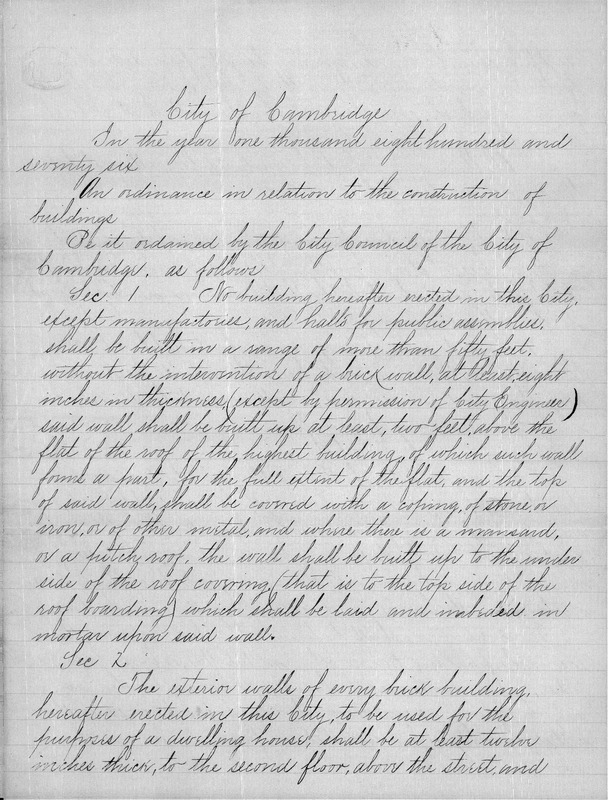 City of Cambridge
In the year one thousand eight hundred and
seventy six
An ordinance in relation to the construction of
buildings
Be it ordained by the City Council of the City of
Cambridge, as follows
Sec. 1 No building hereafter erected in this City,
except manufactories, and halls for public assemblies,
shall be built in a range of more than fifty feet,
without the intervention of a brick wall, at least, eight
inches in thickness, (except by permission of City Engineer)
said wall shall be built up at least, two feet, above the
flat of the roof of the highest building, of which such wall
forms a part, for the full extent of the flat, and the top
of said wall, shall be covered with a coping, of stone, or
iron, or of other metal, and where there is a mansard,
or a pitch roof, the wall shall be built up to the under
side of the roof covering, (that is to the top side of the
roof boarding) which shall be laid and imbeded in
mortar upon said wall.
Sec 2
The exterior walls of every brick building,
hereafter erected in this City, to be used for the
purposes of a dwelling house, shall be at least twelve
inches thick, to the second floor, above the street, and